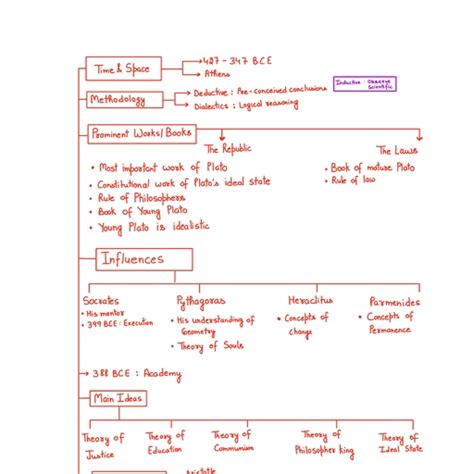 Time & Space
427 - 347 BCE
Athens
Methodology
Deductive : Pre-conceived conclusions
Dialectics : Logical reasoning
Inductive : Observe
Scientific
Prominent Works/Books
The Republic
The Laws
• Most important work of Plato
• Constitutional work of Plato's ideal state
• Rule of Philosophers
• Book of Young Plato
• Young Plato is idealistic
• Book of mature Plato
• Rule of law
Influences
Socrates
• His mentor
• 399 BCE : Execution
Pythagoras
• His understanding of
Geometry
• Theory of Souls
Heraclitus
• Concepts of
change
Parmenides
• Concepts of
Permanence
388 BCE : Academy
Main Ideas
Theory of
Justice
Theory of
Education
Theory of
Communism
Theory of
Philosopher king
Theory of
Ideal State
Aristotle